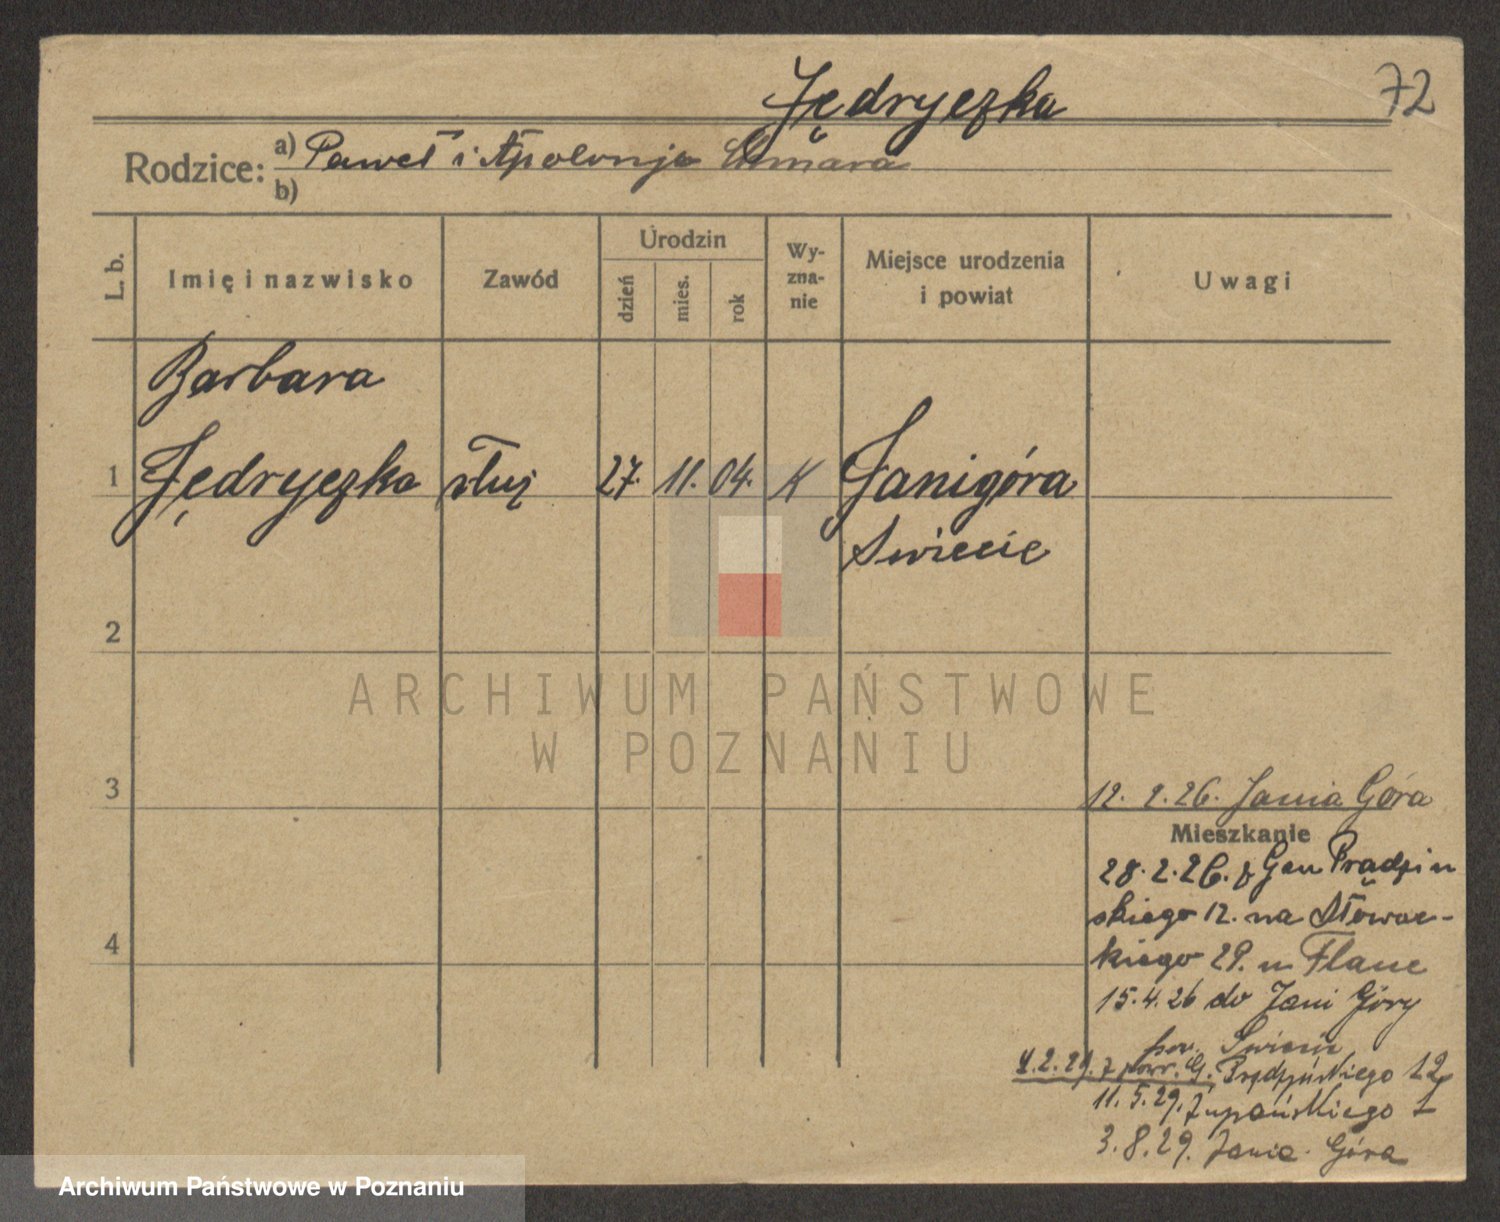 Jędryczka
72
Rodzice: a) Paweł i Apolonja
b)
L. b. Imię i nazwisko Zawód Urodzin dzień mies. rok Wy-zna-nie Miejsce urodzenia i powiat Uwagi
Barbara
1 Jędryczka służ 27. 11. 04. K Janigóra
Swiecie
2
ARCHIWUM PAŃSTWOWE
W POZNANIU
3
12. 2. 26. Jania Góra
Mieszkanie
28. 2. 26. z Gen Prądzin
skiego 12. na Słowac-
4
kiego 29. u
15. 4. 26 do Jani Góry
pow. Swiecie
7 pow. G. Prądzyńskiego 12
11. 5. 29. Żupańskiego 1
3. 8. 29. Jania Góra
Archiwum Państwowe w Poznaniu